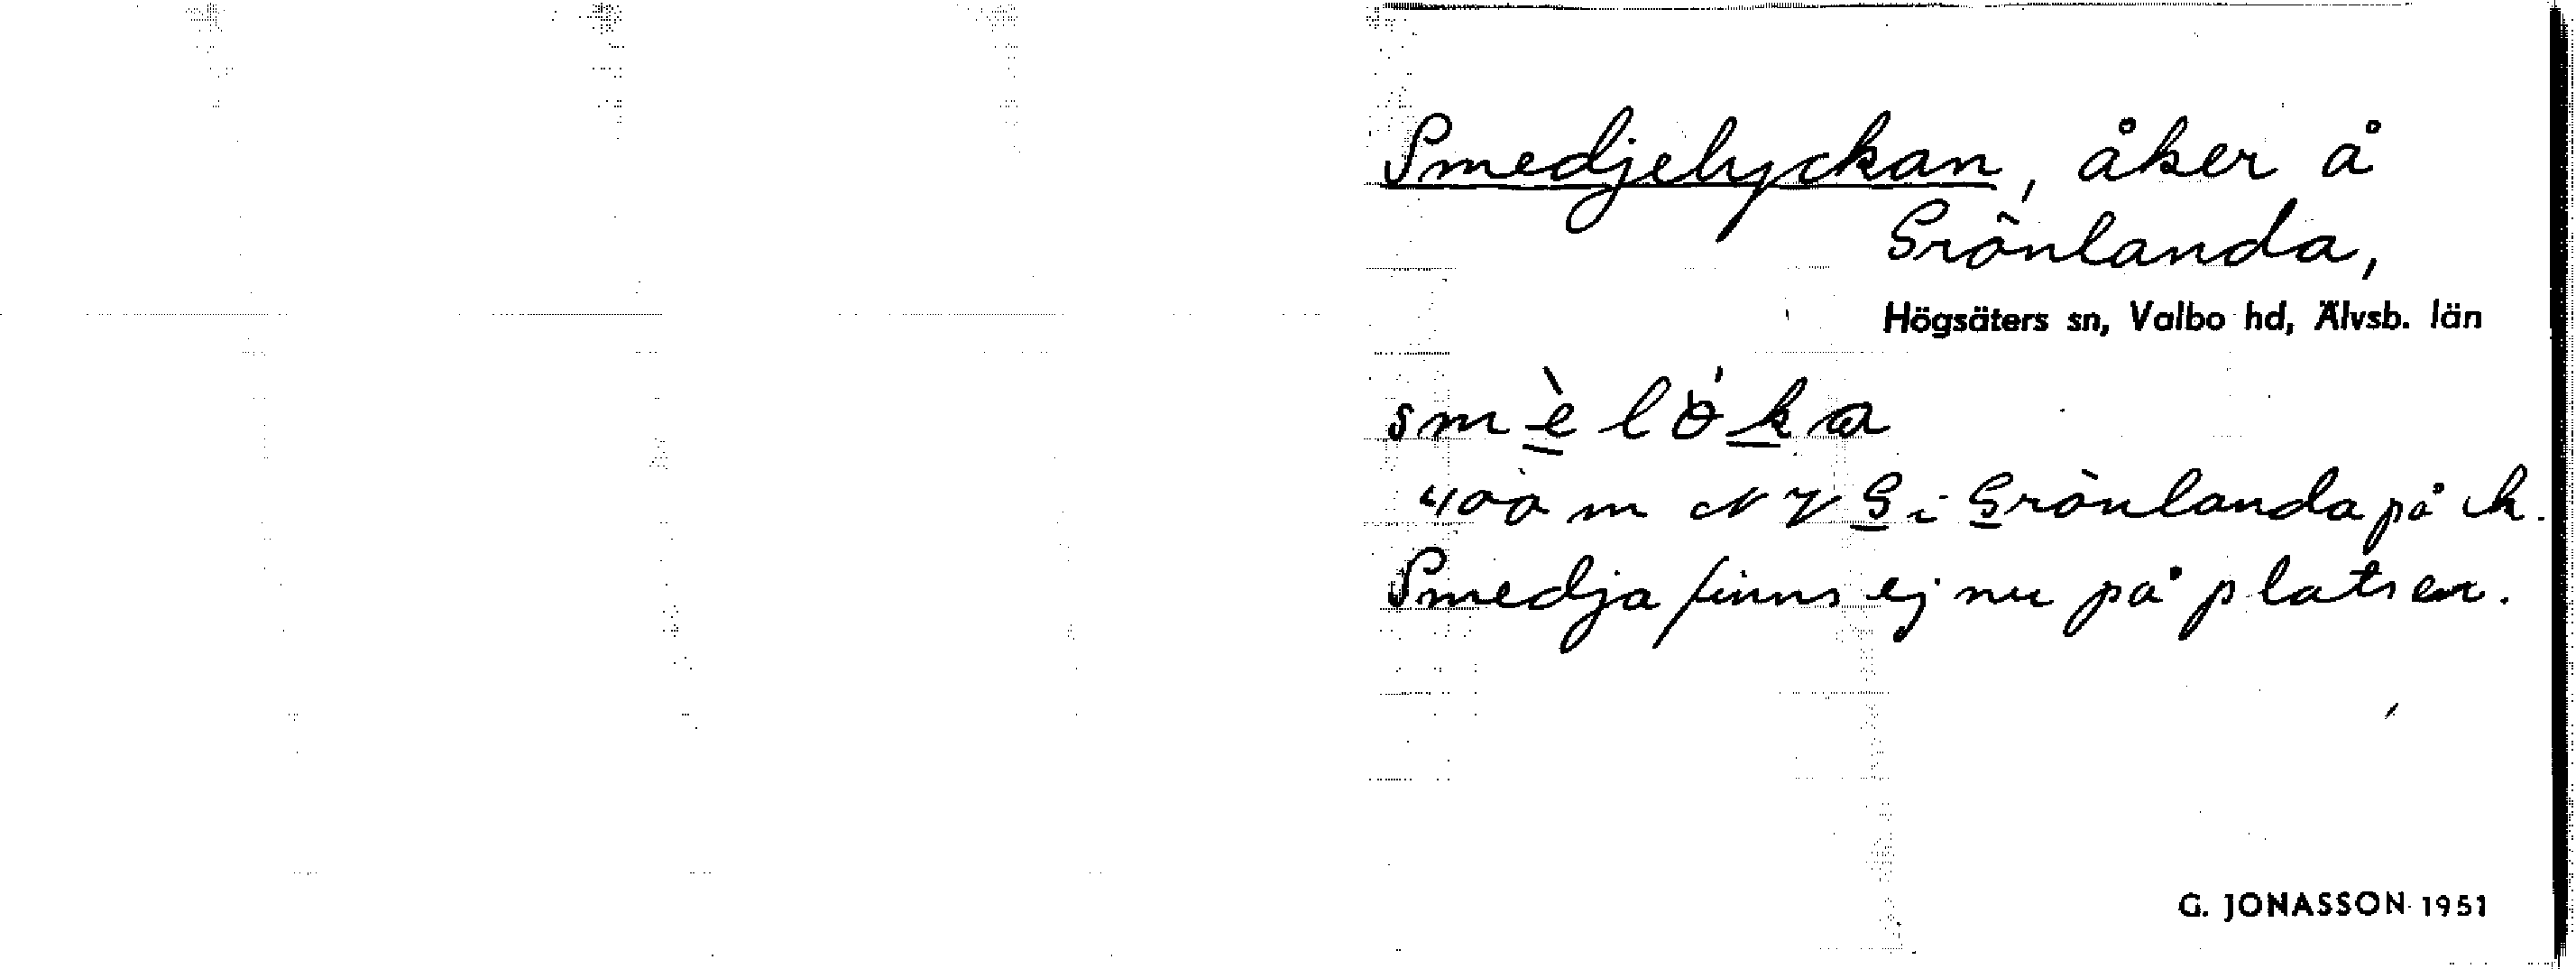 Smedjelyckan, åker å
Grönlanda,
Högsäters sn, Valbo hd, Älvsb. län
smèlǿka
400 m NV G i Grönlanda på k.
Smedja finns ej nu på platsen.
G. JONASSON 1951